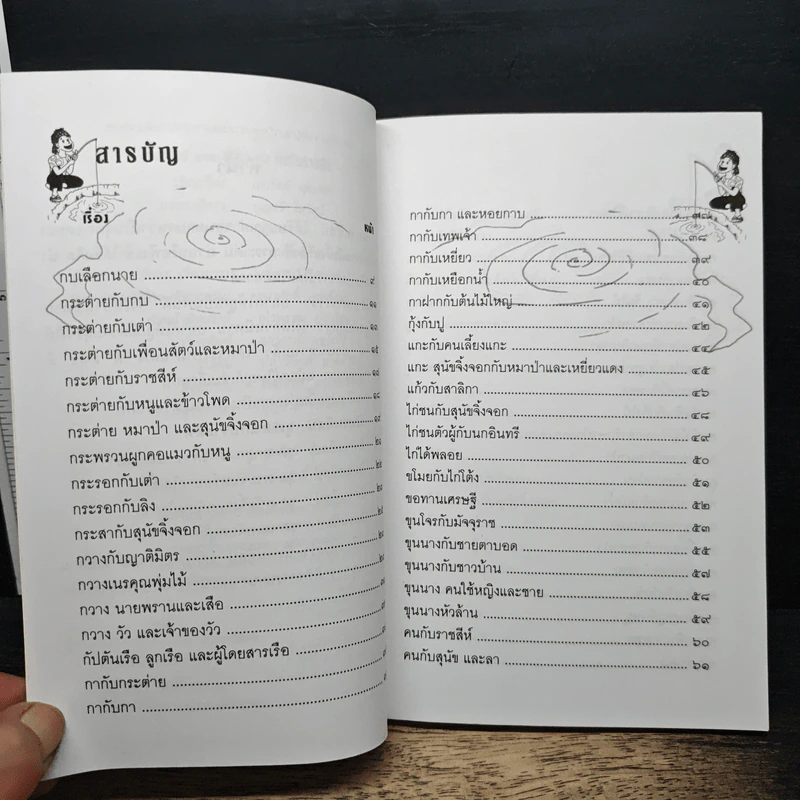 สารบัญ
เรื่อง
หน้า
กบเลือกนาย ๙
กระต่ายกับกบ ๑๑
กระต่ายกับเต่า ๑๓
กระต่ายกับเพื่อนสัตว์และหมาป่า ๑๕
กระต่ายกับราชสีห์
กระต่ายกับหนูและข้าวโพด
กระต่าย หมาป่า และสุนัขจิ้งจอก
กระพรวนผูกคอแมวกับหนู
กระรอกกับเต่า
กระรอกกับลิง
กระสากับสุนัขจิ้งจอก
กวางกับญาติมิตร
กวางเนรคุณพุ่มไม้
กวาง นายพรานและเสือ
กวาง วัว และเจ้าของวัว
กัปตันเรือ ลูกเรือ และผู้โดยสารเรือ
กากับกระต่าย
กากับกา
กากับกา และหอยกาบ
กากับเทพเจ้า ๓๘
กากับเหยี่ยว ๓๙
กากับเหยือกน้ำ ๔๐
กาฝากกับต้นไม้ใหญ่ ๔๑
กุ้งกับปู ๔๒
แกะกับคนเลี้ยงแกะ ๔๔
แกะ สุนัขจิ้งจอกกับหมาป่าและเหยี่ยวแดง ๔๕
แก้วกับสาลิกา ๔๖
ไก่ชนกับสุนัขจิ้งจอก ๔๘
ไก่ชนตัวผู้กับนกอินทรี ๔๙
ไก่ได้พลอย ๕๐
ขโมยกับไก่โต้ง ๕๑
ขอทานเศรษฐี ๕๒
ขุนโจรกับมัจจุราช ๕๓
ขุนนางกับชายตาบอด ๕๕
ขุนนางกับชาวบ้าน ๕๗
ขุนนาง คนใช้หญิงและชาย ๕๘
ขุนนางหัวล้าน ๕๙
คนกับราชสีห์ ๖๐
คนกับสุนัข และลา ๖๑